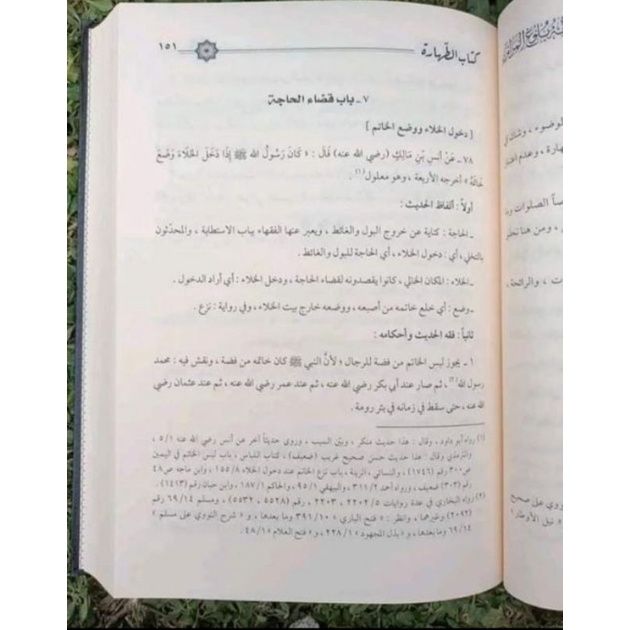 كتاب الطهارة ١٥١
٧ـ باب قضاء الحاجة
[ دخول الخلاء ووضع الخاتم ]
٧٨ـ عَنْ أنسِ بْنِ مَالِكٍ (رضي الله عنه) قَالَ : « كَانَ رَسُولُ الله ﷺ إِذَا دَخَلَ الخَلَاءَ وَضَعَ
خَاتَمَهُ » أخرجه الأربعة ، وهو معلول(١) .
أولاً : ألفاظ الحديث :
ـ الحاجة : كناية عن خروج البول والغائط ، ويعبر عنها الفقهاء بباب الاستطابة ، والمحدّثون
بالتخلي، أي : دخول الخلاء ، أي الحاجة للبول والغائط .
ـ الخلاء : المكان الخالي ، كانوا يقصدونه لقضاء الحاجة ، ودخل الخلاء : أي أراد الدخول .
ـ وضع : أي خلع خاتمه من أصبعه ، ووضعه خارج بيت الخلاء ، وفي رواية : نزع .
ثانياً : فقه الحديث وأحكامه :
١ ـ يجوز لبس الخاتم من فضة للرجال ؛ لأنَّ النبي ﷺ كان خاتمه من فضة ، ونقش فيه : محمد
رسول الله(٢) ، ثم صار عند أبي بكر رضي الله عنه ، ثم عند عمر رضي الله عنه ، ثم عند عثمان رضي
الله عنه ، حتى سقط في زمانه في بئر رومة .
(١) رواه أبو داود ، وقال : هذا حديث منكر ، وبيّن السبب ، وروي حديثاً آخر عن أنس رضي الله عنه ٥/١ ،
والترمذي وقال : هذا حديث حسن صحيح غريب (ضعيف) ، كتاب اللباس ، باب لبس الخاتم في اليمين
ص ٣٠٠ رقم (١٧٤٦) ، والنسائي ، الزينة ، باب نزع الخاتم عند دخول الخلاء ١٥٥/٨ ، وابن ماجه ص ٤٨
رقم (٣٠٣) ضعيف ، ورواه أحمد ٣١١/٢ ، والبيهقي ٩٥/١ ، والحاكم ١٨٧/١ ، وابن حبان رقم (١٤١٣) .
(٢) رواه البخاري في عدة روايات ٢٢٠٢/٥ ، ٢٢٠٣ ، رقم (٥٥٢٨ ، ٥٥٣٢) ، ومسلم ٦٩/١٤ رقم
(٢٠٩٢) وغيرهما ، وانظر : « فتح الباري » ٣٩١/١٠ وما بعدها ، و « شرح النووي على مسلم »
٦٩/١٤ وما بعدها ، و « بذل المجهود » ٢٢٨/١ ، و « فتح العلام » ٤٨/١ .
بلوغ المرام
الوضوء ، وشك في
الصلوات وما
، ومن هنا تظهر
ت ، والرائحة ،
ووي على صحيح
« نيل الأوطار »